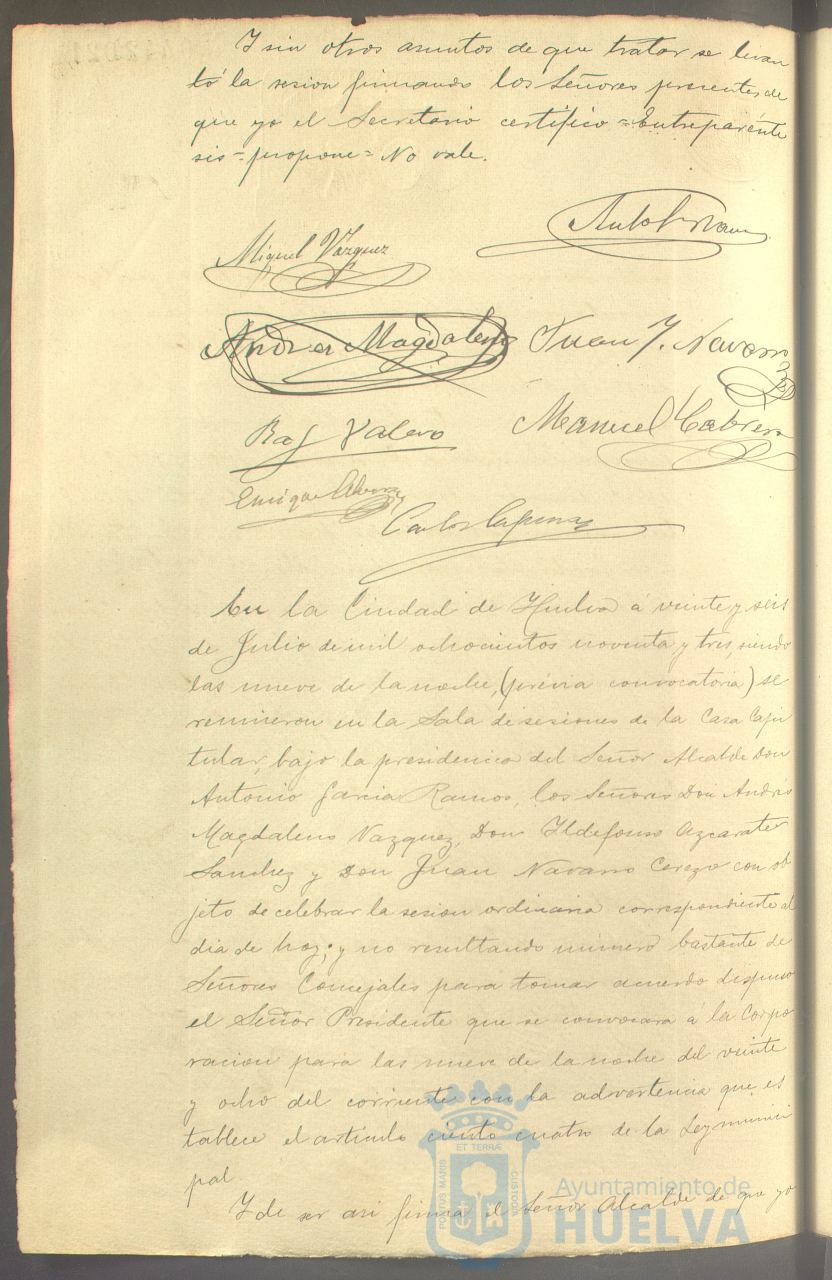 Y sin otros asuntos de que tratar se levan
tó la sesion firmando los Señores presentes de
que yo el Secretario certifico = Entreparénte
sis = propone = No vale.
Miguel Vázquez
Andres Magdaleno Juan J. Navarro
Raf Valero Manuel Cabrera
Enrique
Carlos
En la Ciudad de Huelva á veinte y seis
de Julio de mil ochocientos noventa y tres, siendo
las nueve de la noche, (prévia convocatoria) se
reunieron en la Sala de sesiones de la Casa Capi
tular, bajo la presidencia del Señor Alcalde Don
Antonio Garcia Ramos, los Señores Don Andrés
Magdaleno Vazquez, Don Ildefonso Azcarate
Sanchez y Don Juan Navarro Cerezo con ob
jeto de celebrar la sesion ordinaria correspondiente al
dia de hoy; y no resultando número bastante de
Señores Concejales para tomar acuerdo dispuso
el Señor Presidente que se convocara á la Corpo
racion para las nueve de la noche del veinte
y ocho del corriente con la advertencia que es
tablece el artículo ciento cuatro de la Ley munici
pal
Y de ser asi firma el Señor Alcalde de que yo
PORTUS MARIS ET TERRÆ CUSTODIA
Ayuntamiento de
HUELVA